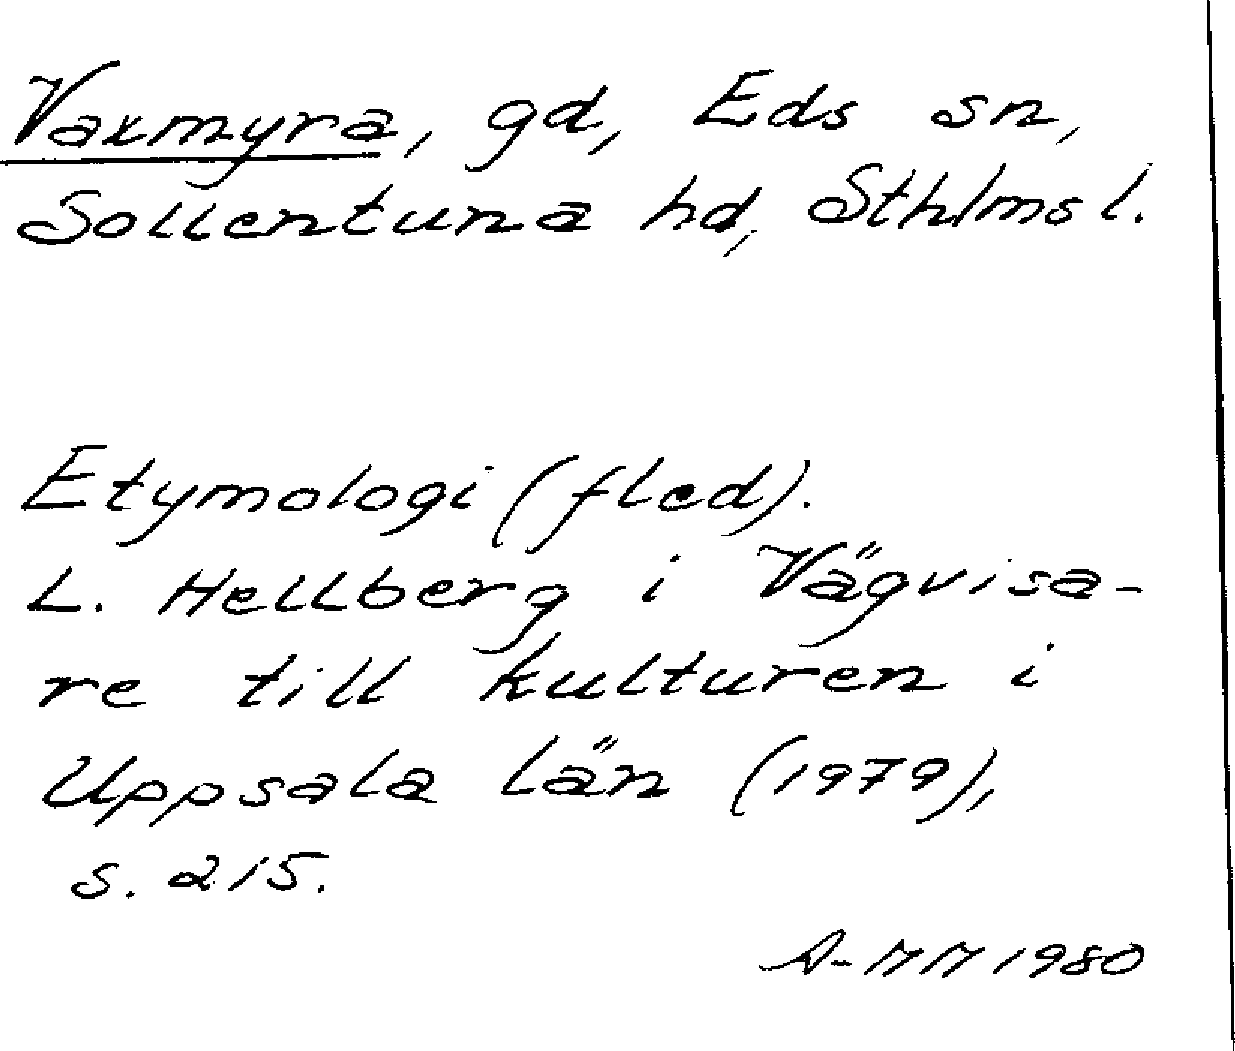 Vaxmyra, gd, Eds sn,
Sollentuna hd, Sthlms l.
Etymologi (fled).
L. Hellberg i Vägvisa-
re till kulturen i
Uppsala län (1979),
s. 215.
A-MM 1980